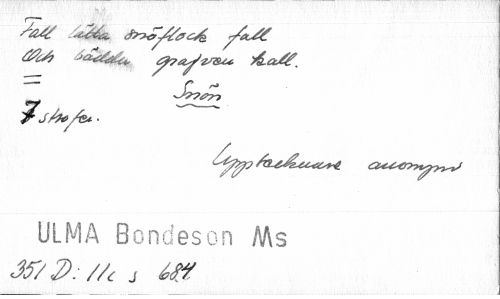 Fall lätta snöflock fall
Och bädda grafven kall.
=
Snön
7 strofer.
Upptecknare anonym
ULMA Bondeson Ms
351 D: 11c s 684